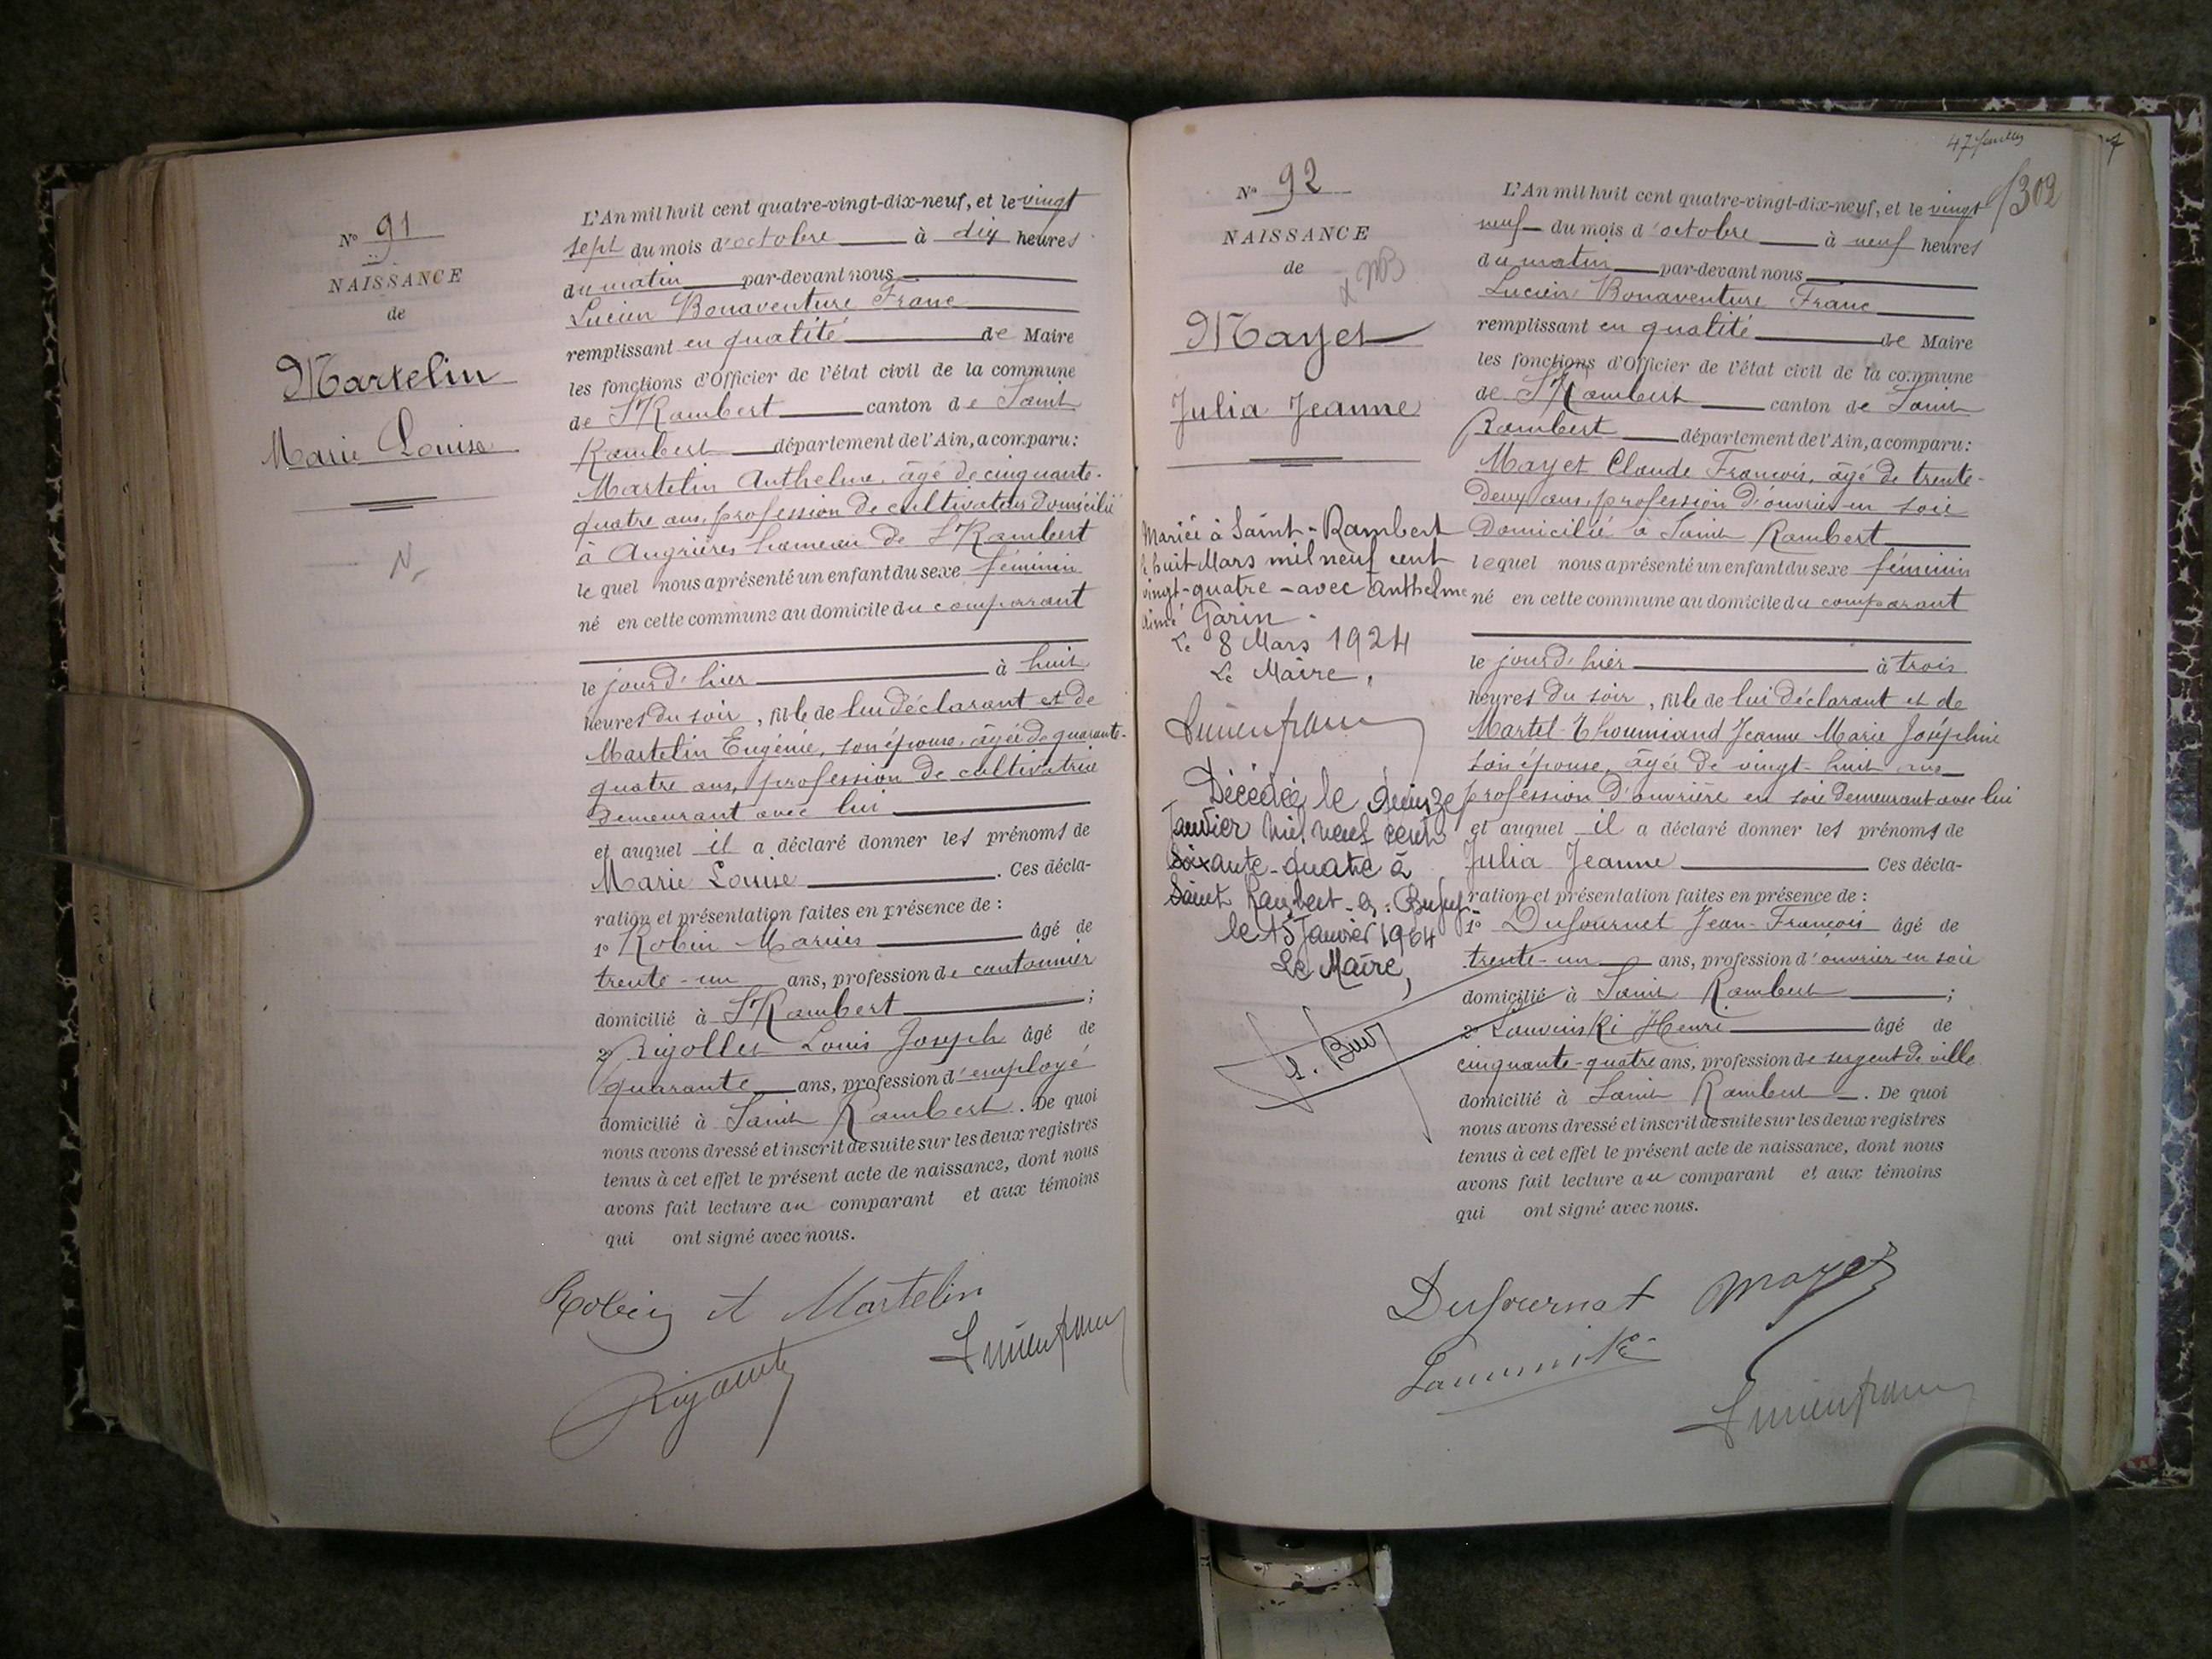 N° 91
NAISSANCE
de
Martelin
Marie Louise
N
L'An mil huit cent quatre-vingt-dix-neuf, et le vingt
sept du mois d'octobre à dix heures
du matin par-devant nous
Lucien Bonaventure Franc
remplissant en qualité de Maire
les fonctions d'Officier de l'état civil de la commune
de St Rambert canton de Saint
Rambert département de l'Ain, a comparu :
Martelin Anthelme, âgé de cinquante-
quatre ans, profession de cultivateur domicilié
à Angrières hameau de St Rambert
le quel nous a présenté un enfant du sexe féminin
né en cette commune au domicile du comparant
le jour d'hier à huit
heures du soir, fille de lui déclarant et de
Martelin Eugénie, son épouse, âgée de quarante-
quatre ans, profession de cultivatrice
demeurant avec lui
et auquel il a déclaré donner les prénoms de
Marie Louise. Ces décla-
ration et présentation faites en présence de :
1° Robin Marius âgé de
trente-un ans, profession de cantonnier
domicilié à St Rambert ;
2° Rigollet Louis Joseph âgé de
quarante ans, profession d'employé
domicilié à Saint Rambert. De quoi
nous avons dressé et inscrit de suite sur les deux registres
tenus à cet effet le présent acte de naissance, dont nous
avons fait lecture au comparant et aux témoins
qui ont signé avec nous.
Robin A Martelin
Lucien franc
47 feuilles
302
N° 92
NAISSANCE
de
Mayet
Julia Jeanne
Mariée à Saint-Rambert
le huit Mars mil neuf cent
vingt-quatre - avec Anthelme
Aimé Garin.
Le 8 Mars 1924
Le Maire,
Lucien franc
Décédée le quinze
Janvier mil neuf cent
soixante-quatre à
Saint Rambert-en-Bugey
le 15 Janvier 1964
Le Maire,
L'An mil huit cent quatre-vingt-dix-neuf, et le vingt
neuf du mois d'octobre à neuf heures
du matin par-devant nous
Lucien Bonaventure Franc
remplissant en qualité de Maire
les fonctions d'Officier de l'état civil de la commune
de St Rambert canton de Saint
Rambert département de l'Ain, a comparu :
Mayet Claude François, âgé de trente-
deux ans, profession d'ouvrier en soie
domicilié à Saint Rambert
lequel nous a présenté un enfant du sexe féminin
né en cette commune au domicile du comparant
le jour d'hier à trois
heures du soir, fille de lui déclarant et de
Martel-Thoumiand Jeanne Marie Joséphine
son épouse, âgée de vingt-huit ans
profession d'ouvrière en soie demeurant avec lui
et auquel il a déclaré donner les prénoms de
Julia Jeanne Ces décla-
ration et présentation faites en présence de :
1° Dufournet Jean-François âgé de
trente-un ans, profession d'ouvrier en soie
domicilié à Saint Rambert ;
2° Lauvinski Henri âgé de
cinquante-quatre ans, profession de sergent de ville
domicilié à Saint Rambert. De quoi
nous avons dressé et inscrit de suite sur les deux registres
tenus à cet effet le présent acte de naissance, dont nous
avons fait lecture au comparant et aux témoins
qui ont signé avec nous.
Dufournet Mayet
Lucien franc